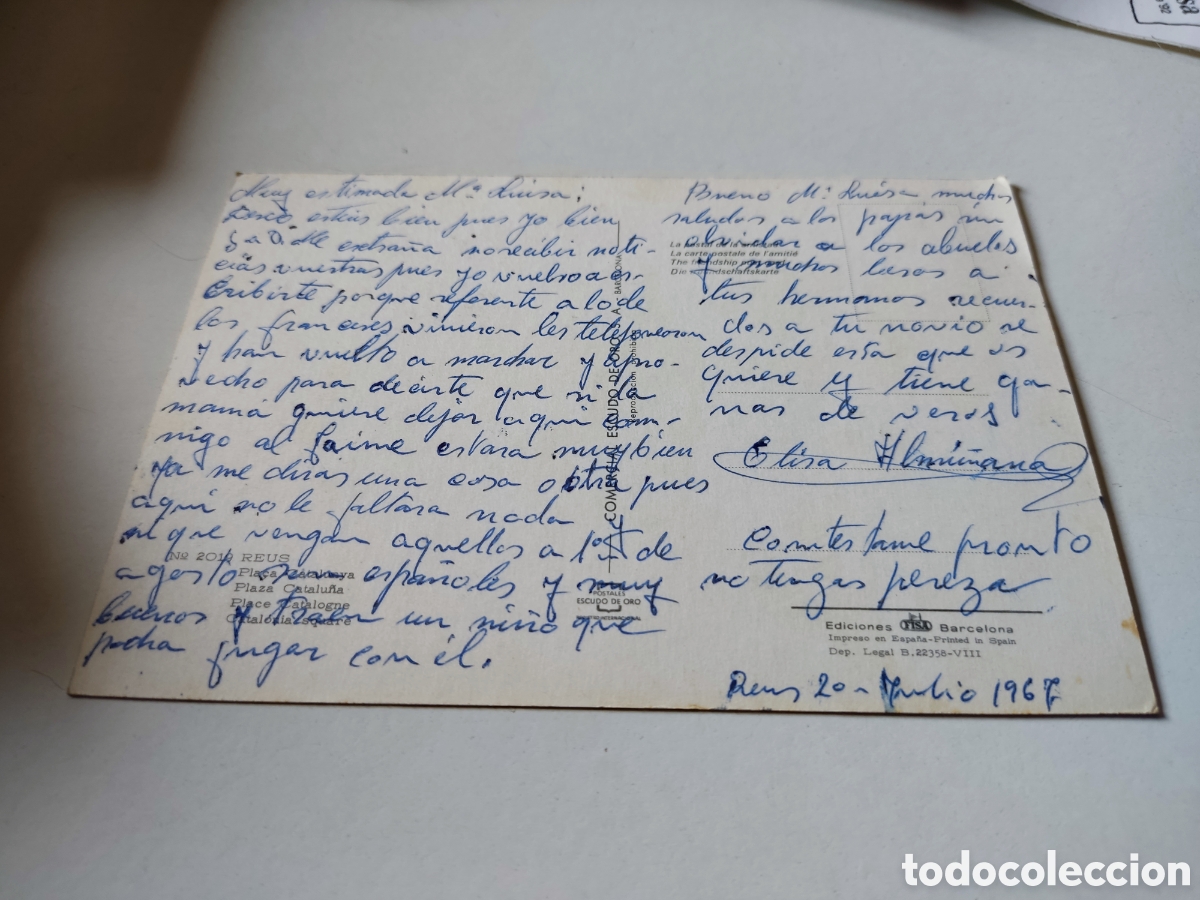 Muy estimada Mª Luisa:
Deseo estéis bien pues yo bien
g a D. Me extraña no recibir noti-
cias vuestras pues yo vuelvo a es-
cribirte porque referente a lo de
los franceses vinieron les telefonearon
y han vuelto a marchar y apro-
vecho para decirte que si la
mamá quiere dejar aquí con-
migo al Jaime estara muy bien
ya me diras una cosa o otra pues
aquí no le faltara nada
ni que vengan aquellos a 1º de
agosto son españoles y muy
buenos y traen un niño que
podra jugar con él.
Nº 2019 REUS
Plaça Catalunya
Plaza Cataluña
Place Catalogne
Catalonia square
COMERCIAL ESCUDO DE ORO, S. A. BARCELONA
Reproducción prohibida
POSTALES
ESCUDO DE ORO
Bueno Mª Luisa muchos
saludos a los papás sin
olvidar a los abuelos
y muchos besos a
tus hermanos recuer-
dos a tu novio se
despide esta que os
quiere y tiene ga-
nas de veros
Elisa Almiñana
La postal de la amistad
La carte postale de l'amitié
The friendship postcard
Die Freundschaftskarte
Contestame pronto
no tengas pereza
Ediciones FISA Barcelona
Impreso en España-Printed in Spain
Dep. Legal B. 22358-VIII
Reus 20-Julio 1967
todocoleccion